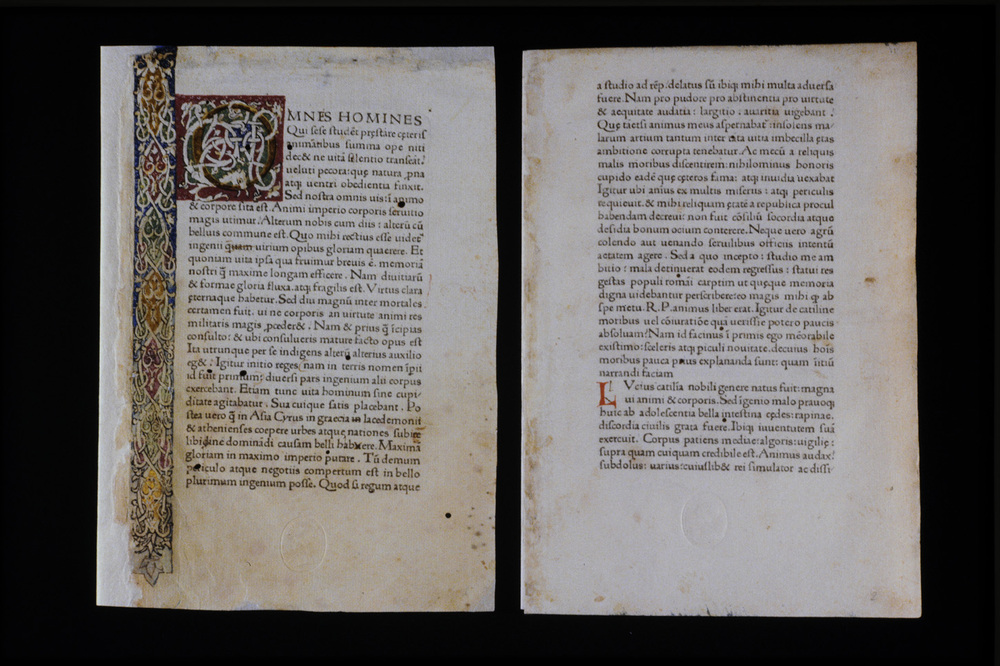 OMNES HOMINES
Qui sese studēt pręstare cęteris
animātibus summa ope niti
dec& ne uitā silentio transeāt:
ueluti pecora: quę natura prona
atq; uentri obedientia finxit.
Sed nostra omnis uis: ī animo
& corpore sita est. Animi imperio corporis seruitio
magis utimur. Alterum nobis cum diis: alterū cū
belluis commune est. Quo mihi rectius esse uidet̃
ingenii quam uirium opibus gloriam quaerere. Et
quoniam uita ipsa qua fruimur breuis ē. memoriā
nostri q̄ maxime longam efficere. Nam diuitiarū
& formae gloria fluxa. atq; fragilis est. Virtus clara
ęternaque habetur. Sed diu magnū inter mortales
certamen fuit. ui ne corporis an uirtute animi res
militaris magis ꝓceder&. Nam & prius q̄ īcipias
consulto: & ubi consulueris mature facto opus est
Ita utrunque per se indigens alterū alterius auxilio
eg&. Igitur initio reges: nam in terris nomen īperii
id fuit primum: diuersi pars ingenium alii corpus
exercebant. Etiam tunc uita hominum sine cupi/
ditate agitabatur. Sua cuique satis placebant. Po
stea uero q̄ in Asia Cyrus in graecia lacedemonii
& athenienses coepere urbes atque nationes subigere
libidinē dominādi causam belli habuere. Maximā
gloriam in maximo imperio putare. Tū demum
periculo atque negotiis compertum est in bello
plurimum ingenium posse. Quod si regum atque
a studio ad rēp. delatus sū ibiq; mihi multa aduersa
fuere. Nam pro pudore pro abstinentia pro uirtute
& aequitate audatia: largitio: auaritia uigebant.
Quę taetsi animus meus aspernabat̃: insolens ma/
larum artium tantum inter tāta uitia imbecilla ętas
ambitione corrupta tenebatur. Ac mecū a reliquis
malis moribus discentirem: nihilominus honoris
cupido eadē quę cęteros fama: atq; inuidia uexabat
Igitur ubi anius ex multis miseriis: atq; periculis
requieuit. & mihi reliquam ętatē a republica procul
habendam decreui: non fuit cōsiliū socordia atque
desidia bonum ocium conterere. Neque uero agrū
colendo aut uenando seruilibus officiis intentū
aetatem agere. Sed a quo incepto: studio me am
bitio: mala detinuerat eodem regressus: statui res
gestas populi romāi carptim ut quęque memoria
digna uidebantur perscribere: eo magis mihi q; ab
spe metu. R. P. animus liber erat. Igitur de catiline
moribus uel cōiuratiōe quā uerissīe potero paucis
absoluam. Nam id facinus ī primis ego mēorabile
existimo: sceleris atq; piculi nouitate. de cuius hoīs
moribus pauca prius explananda sunt: quam īitiū
narrandi faciam
L Vcius catilīa nobili genere natus fuit: magna
ui animi & corporis. Sed īgenio malo prauoq;
huic ab adolescentia bella intestina cędes: rapinae.
discordia ciuilis grata fuere. Ibiq; iuuentutem suā
exercuit. Corpus patiens mediae: algoris: uigilię:
supra quam cuiquam credibile est. Animus audax:
subdolus: varius: cuiuslib& rei simulator ac dissi/